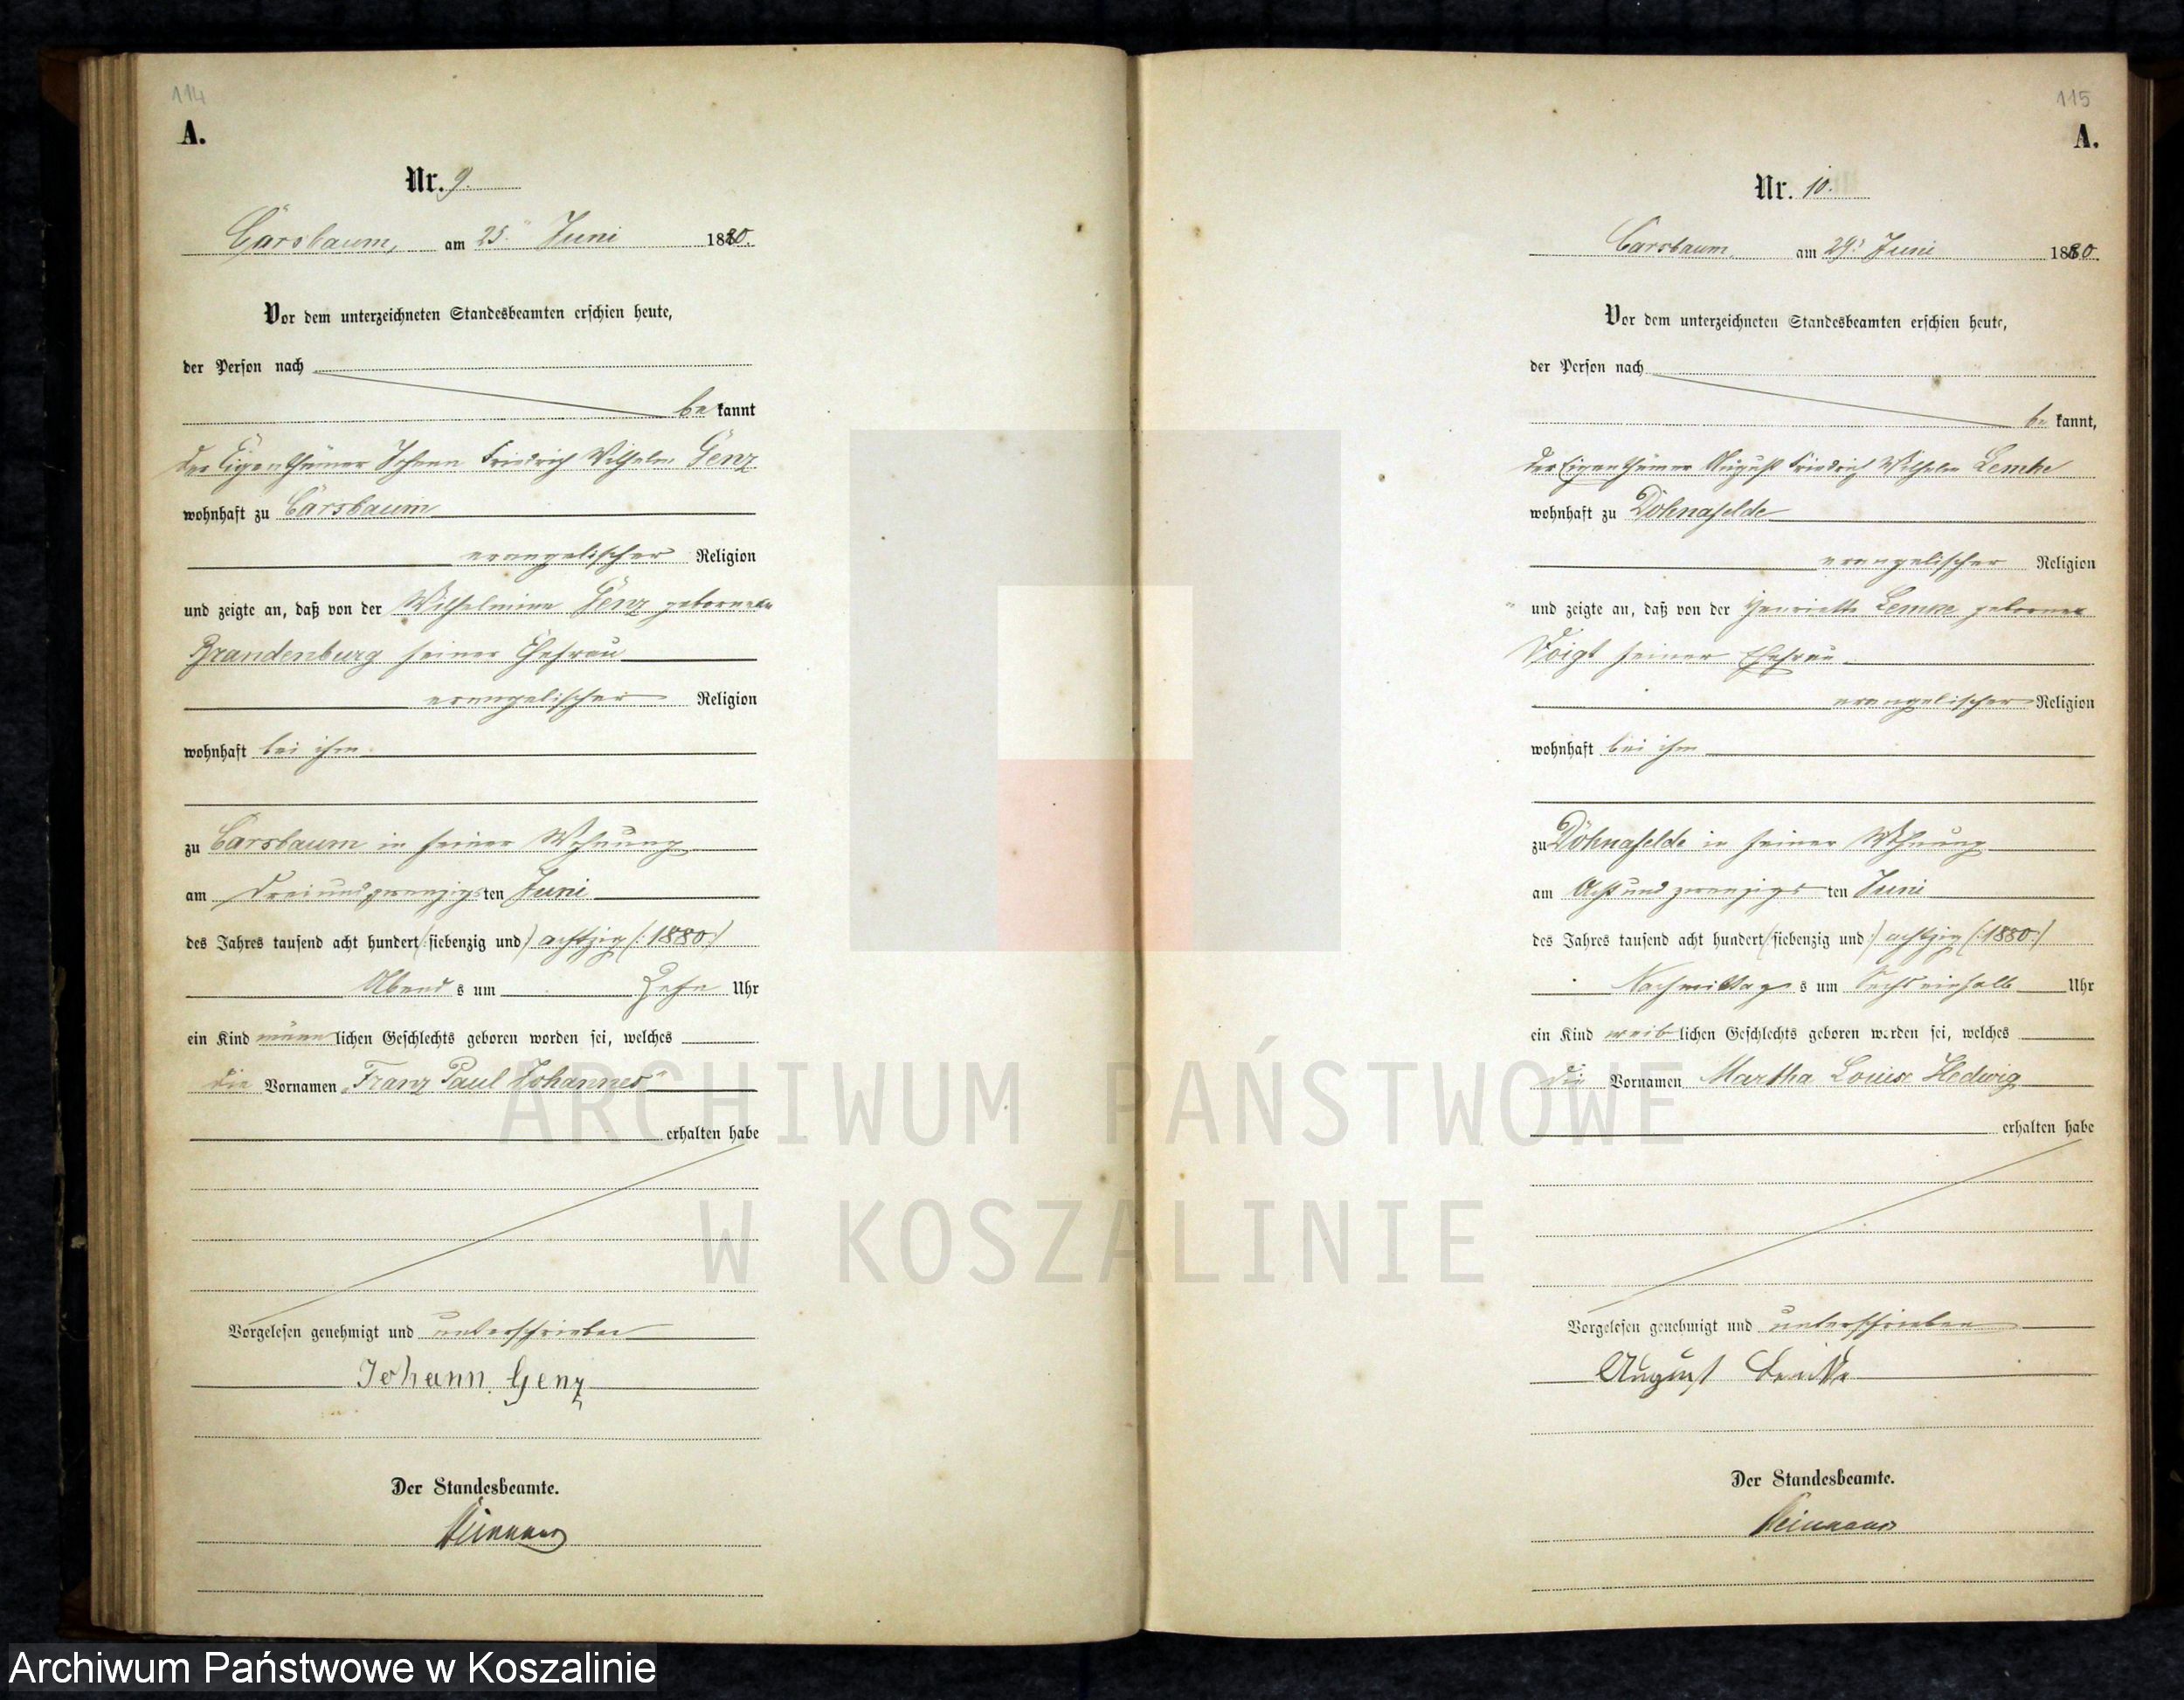 114
A.
Nr. 9.
Carsbaum, am 25. Juni 1880.
Vor dem unterzeichneten Standesbeamten erschien heute,
der Person nach
bekannt
der Eigenthümer Johann Friedrich Wilhelm Genz
wohnhaft zu Carsbaum
evangelischer Religion
und zeigte an, daß von der Wilhelmine Genz geborenen
Brandenburg seiner Ehefrau
evangelischer Religion
wohnhaft bei ihm
zu Carsbaum in seiner Wohnung
am dreiundzwanzigsten Juni
des Jahres tausend acht hundert (: siebenzig und :) achtzig (: 1880 :)
Abends um Zehn Uhr
ein Kind männlichen Geschlechts geboren worden sei, welches
die Vornamen „Franz Paul Johannes“
erhalten habe
Vorgelesen genehmigt und unterschrieben
Johann Genz
Der Standesbeamte.
115
A.
Nr. 10.
Carsbaum, am 29. Juni 1880.
Vor dem unterzeichneten Standesbeamten erschien heute,
der Person nach
bekannt,
der Eigenthümer August Friedrich Wilhelm Lemke
wohnhaft zu Döhnafelde
evangelischer Religion
und zeigte an, daß von der Henriette Lemke geborenen
Voigt seiner Ehefrau
evangelischer Religion
wohnhaft bei ihm
zu Döhnafelde in seiner Wohnung
am Acht und zwanzigsten Juni
des Jahres tausend acht hundert (: siebenzig und :) achtzig (: 1880 :)
Nachmittags um Sechseinhalb Uhr
ein Kind weiblichen Geschlechts geboren worden sei, welches
die Vornamen Martha Louise Hedwig
erhalten habe
Vorgelesen genehmigt und unterschrieben
August Lemke
Der Standesbeamte.
ARCHIWUM PAŃSTWOWE
W KOSZALINIE
Archiwum Państwowe w Koszalinie